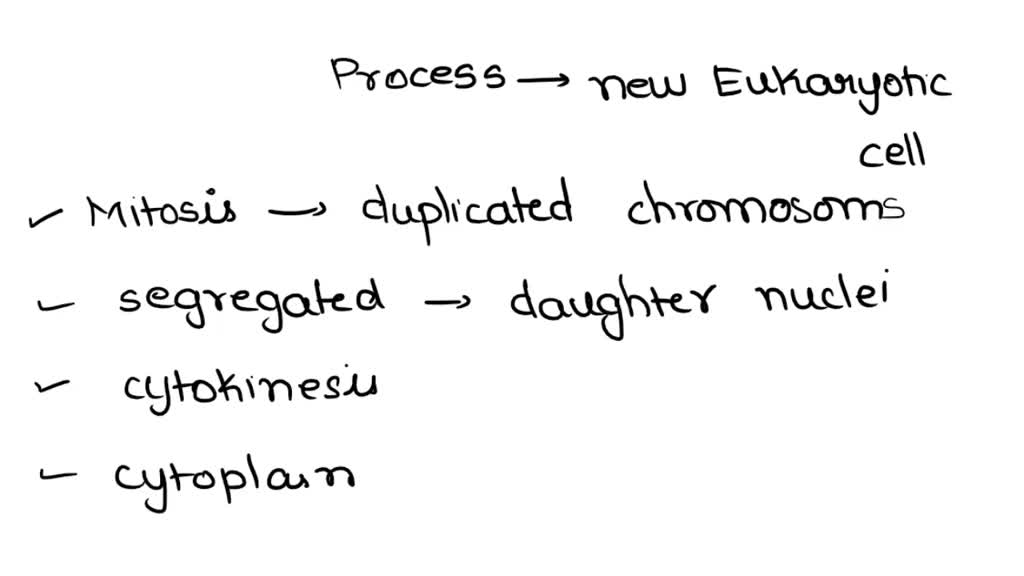 Process → new Eukaryotic
cell
✓ Mitosis → duplicated chromosoms
✓ segregated → daughter nuclei
✓ cytokinesis
✓ cytoplasm